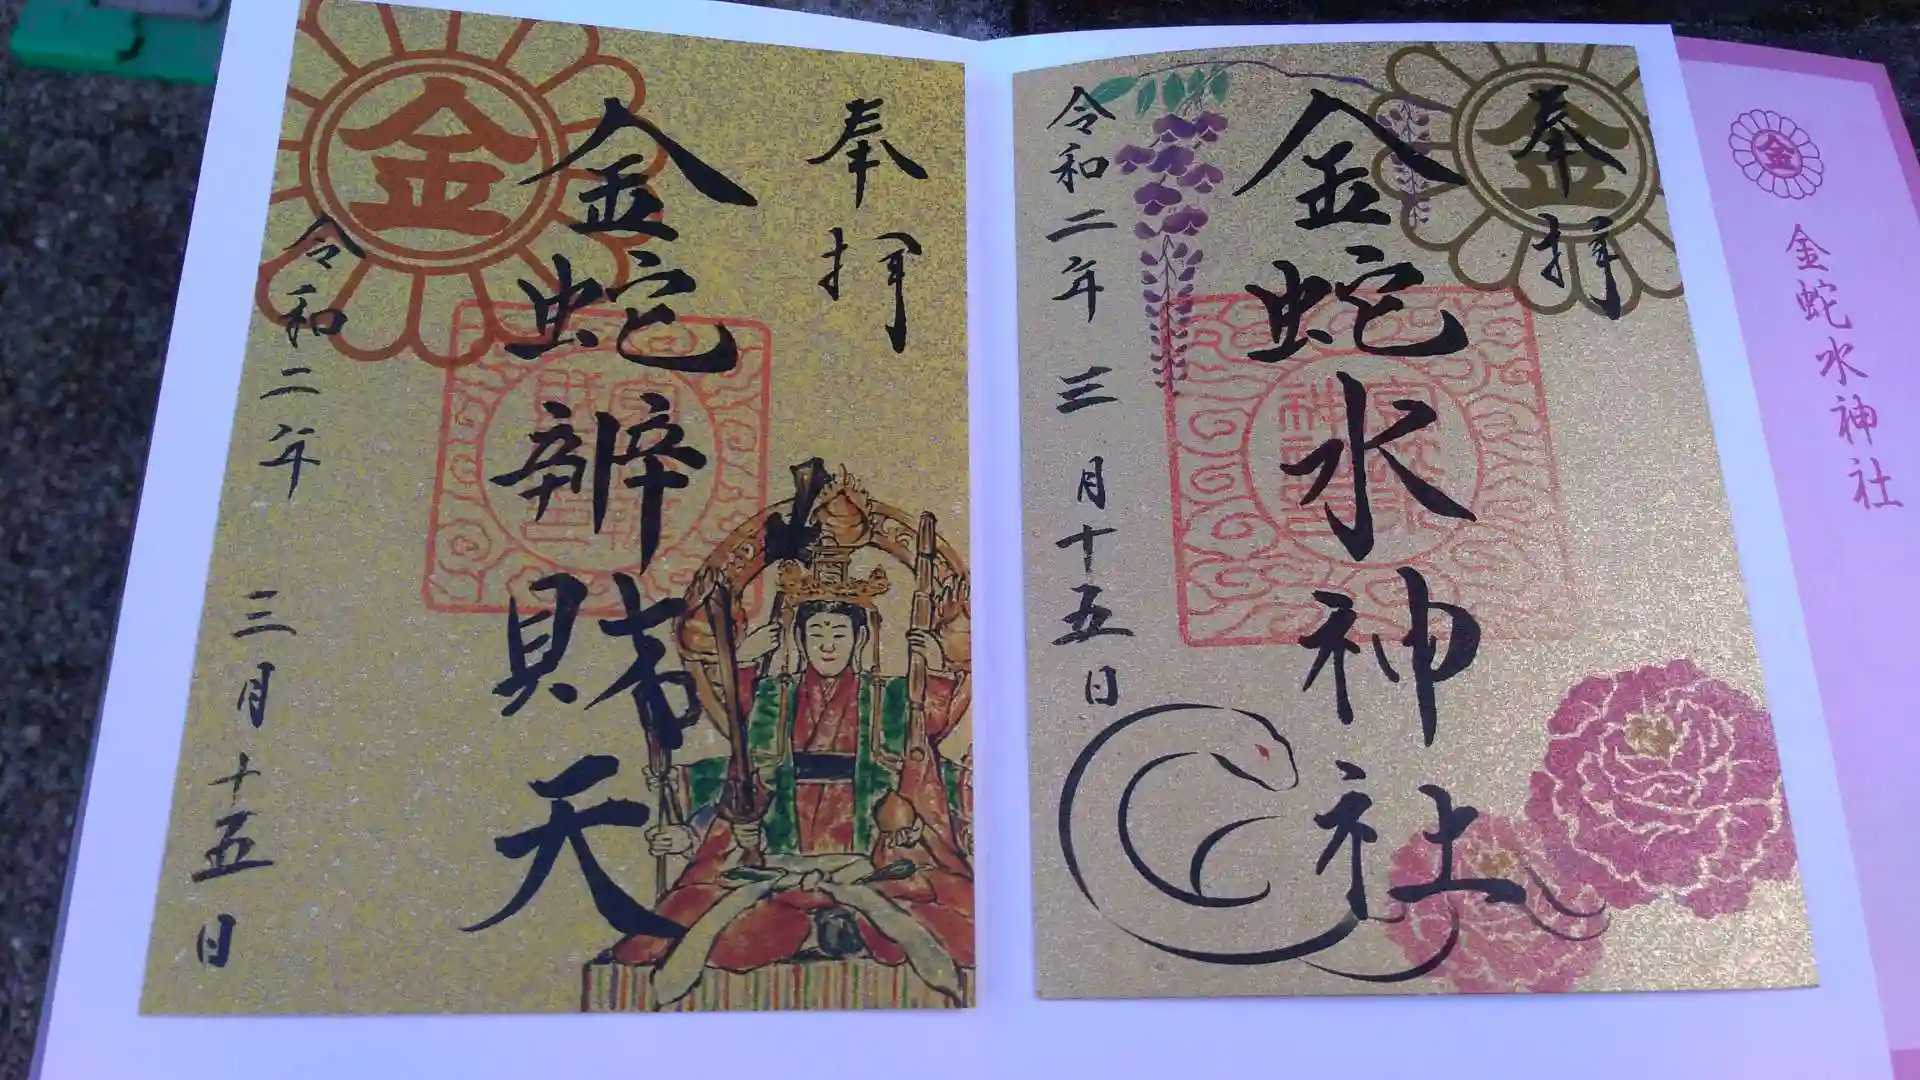 奉拝
金蛇水神社
令和二年 三月十五日
金
奉拝
金蛇辨財天
令和二年 三月十五日
金
金
金蛇水神社